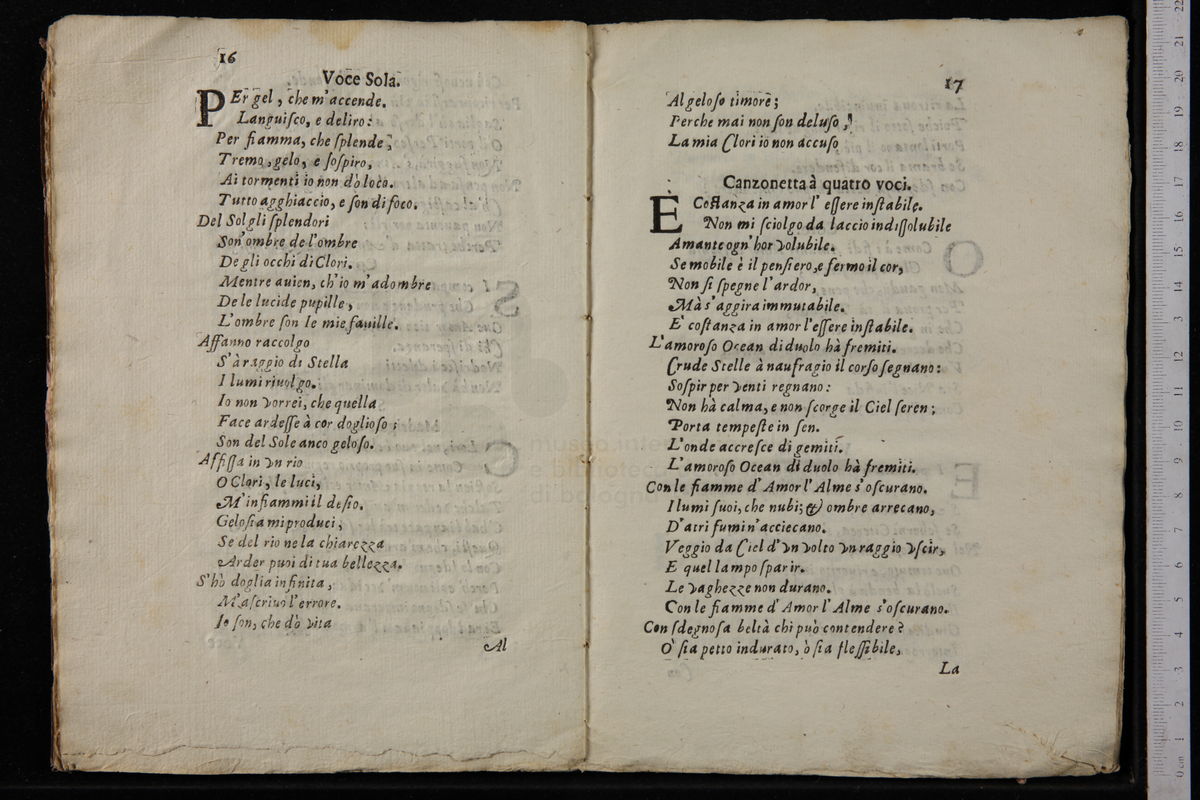 16
Voce Sola.
PEr gel, che m'accende.
Languisco, e deliro:
Per fiamma, che splende,
Tremo, gelo, e sospiro,
Ai tormenti io non dò loco.
Tutto agghiaccio, e son di foco.
Del Sol gli splendori
Son' ombre de l'ombre
De gli occhi di Clori.
Mentre auien, ch'io m'adombre
De le lucide pupille,
L'ombre son le mie fauille.
Affanno raccolgo
S'à raggio di Stella
I lumi riuolgo.
Io non vorrei, che quella
Face ardesse à cor doglioso;
Son del Sole anco geloso.
Affissa in vn rio
O Clori, le luci,
M'infiammi il desio.
Gelosia mi produci,
Se del rio ne la chiarezza
Arder puoi di tua bellezza.
S'hò doglia infinita,
M'ascriuo l'errore.
Io son, che dò vita
Al
17
Al geloso timore;
Perche mai non son deluso,
La mia Clori io non accuso
Canzonetta à quatro voci.
È Costanza in amor l'essere instabile.
Non mi sciolgo da laccio indissolubile
Amante ogn'hor volubile.
Se mobile è il pensiero, e fermo il cor,
Non si spegne l'ardor,
Mà s'aggira immutabile.
E' costanza in amor l'essere instabile.
L'amoroso Ocean di duolo hà fremiti.
Crude Stelle à naufragio il corso segnano:
Sospir per venti regnano:
Non hà calma, e non scorge il Ciel seren;
Porta tempeste in sen.
L'onde accresce di gemiti.
L'amoroso Ocean di duolo hà fremiti.
Con le fiamme d'Amor l'Alme s'oscurano.
I lumi suoi, che nubi; & ombre arrecano,
D'atri fumi n'acciecano.
Veggio da Ciel d'vn volto vn raggio vscir,
E quel lampo sparir.
Le vaghezze non durano.
Con le fiamme d'Amor l'Alme s'oscurano.
Con sdegnosa beltà chi può contendere?
Ò sia petto indurato, ò sia flessibile,
La